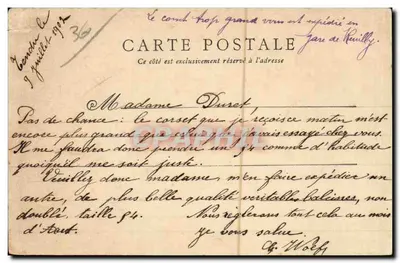 Vendu le
9 juillet 1902
36
Le corset trop grand vous est expédié en
Gare de Neuilly.
CARTE POSTALE
Ce côté est exclusivement réservé à l'adresse
Madame Duret,
Pas de chance : le corset que je reçois ce matin m'est
encore plus grand que celui que j'avais essayé chez vous.
Il me faudra donc prendre un 54 comme d'habitude
quoiqu'il me soit juste.
Veuillez donc madame, m'en faire expédier un
autre, de plus belle qualité veritables baleines, non
doublé, taille 54. Nous règlerons tout cela au mois
d'Aout. Je vous salue.